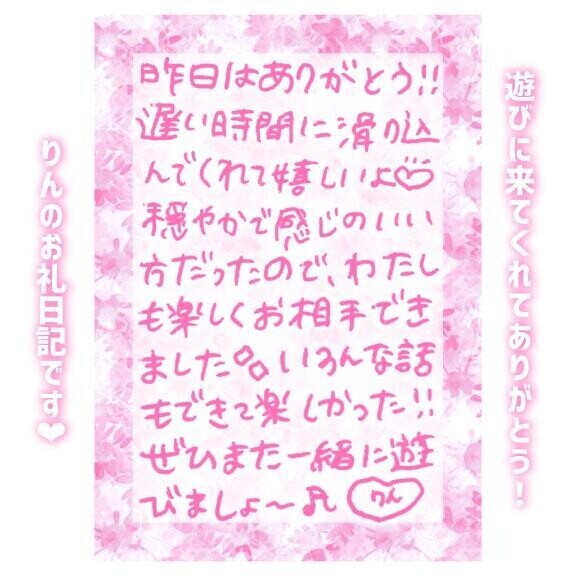 遊びに来てくれてありがとう!
昨日はありがとう!!
遅い時間に滑り込
んでくれて嬉しいよ♡
穏やかで感じのいい
方だったので、わたし
も楽しくお相手でき
ました いろんな話
もできて楽しかった!!
ぜひまた一緒に遊
びましょ〜♫ りん
りんのお礼日記です❤